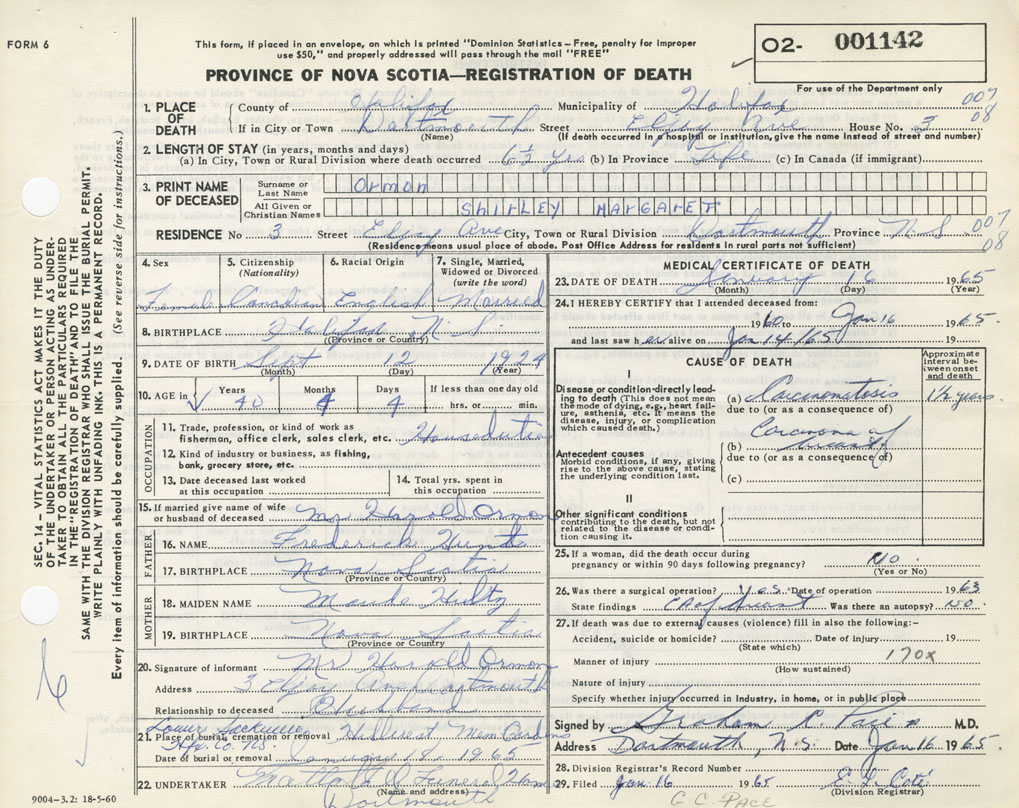 FORM 6
This form, if placed in an envelope, on which is printed "Dominion Statistics – Free, penalty for improper
use $50," and properly addressed will pass through the mail "FREE"
02- 001142
For use of the Department only
PROVINCE OF NOVA SCOTIA—REGISTRATION OF DEATH
1. PLACE OF DEATH { County of Halifax Municipality of Halifax 007
If in City or Town Dartmouth Street Ave House No. 3 08
(Name) (If death occurred in a hospital or institution, give the name instead of street and number)
2. LENGTH OF STAY (in years, months and days)
(a) In City, Town or Rural Division where death occurred 6½ yrs (b) In Province Life (c) In Canada (if immigrant)
3. PRINT NAME OF DECEASED Surname or Last Name Ormon
All Given or Christian Names SHIRLEY MARGARET
RESIDENCE No 3 Street Ave City, Town or Rural Division Dartmouth Province N.S 007
08
(Residence means usual place of abode. Post Office Address for residents in rural parts not sufficient)
4. Sex 5. Citizenship (Nationality) 6. Racial Origin 7. Single, Married, Widowed or Divorced (write the word)
Female Canadian English Married
8. BIRTHPLACE Halifax N.S.
(Province or Country)
9. DATE OF BIRTH Sept 12 1924
(Month) (Day) (Year)
10. AGE in Years 40 Months 4 Days 4 If less than one day old
hrs. or min.
OCCUPATION
11. Trade, profession, or kind of work as
fisherman, office clerk, sales clerk, etc. Houseduties
12. Kind of industry or business, as fishing,
bank, grocery store, etc.
13. Date deceased last worked at this occupation 14. Total yrs. spent in this occupation
15. If married give name of wife
or husband of deceased Mr Harold Ormon
FATHER
16. NAME Frederick
17. BIRTHPLACE Nova Scotia
(Province or Country)
MOTHER
18. MAIDEN NAME Maude Hultz
19. BIRTHPLACE Nova Scotia
(Province or Country)
20. Signature of informant Mr Harold Ormon
Address 3 Ave Dartmouth
Relationship to deceased Husband
Lower Sackville
Hfx. Co. N.S.
21. Place of burial, cremation or removal Hillcrest Mem Gardens
Date of burial or removal January 18, 1965
22. UNDERTAKER Funeral Home
(Name and address)
Dartmouth
MEDICAL CERTIFICATE OF DEATH
23. DATE OF DEATH January 16 1965
(Month) (Day) (Year)
24. I HEREBY CERTIFY that I attended deceased from:
1960 to Jan 16 1965.
and last saw her alive on Jan 14 1965.
CAUSE OF DEATH
Approximate interval between onset and death
I
Disease or condition directly leading to death (This does not mean the mode of dying, e.g., heart failure, asthenia, etc. It means the disease, injury, or complication which caused death.)
(a) Carcinomatosis 1½ years
due to (or as a consequence of)
Antecedent causes
Morbid conditions, if any, giving rise to the above cause, stating the underlying condition last.
(b) Carcinoma of breast
due to (or as a consequence of)
(c)
II
Other significant conditions
contributing to the death, but not related to the disease or condition causing it.
25. If a woman, did the death occur during
pregnancy or within 90 days following pregnancy? NO
(Yes or No)
26. Was there a surgical operation? Yes Date of operation 1963
State findings Ca of breast Was there an autopsy? No.
27. If death was due to external causes (violence) fill in also the following:–
Accident, suicide or homicide? Date of injury 19
(State which)
Manner of injury 170X
(How sustained)
Nature of injury
Specify whether injury occurred in industry, in home, or in public place
Signed by Graham M.D.
Address Dartmouth, N.S. Date Jan 16 1965.
28. Division Registrar's Record Number
29. Filed Jan 16 1965
(Division Registrar)
G. C. PACE
SEC. 14 – VITAL STATISTICS ACT MAKES IT THE DUTY
OF THE UNDERTAKER OR PERSON ACTING AS UNDER-
TAKER TO OBTAIN ALL THE PARTICULARS REQUIRED
IN THE "REGISTRATION OF DEATH" AND TO FILE THE
SAME WITH THE DIVISION REGISTRAR WHO SHALL ISSUE THE BURIAL PERMIT.
WRITE PLAINLY WITH UNFADING INK. THIS IS A PERMANENT RECORD.
Every item of information should be carefully supplied. (See reverse side for instructions.)
9004-3.2: 18-5-60